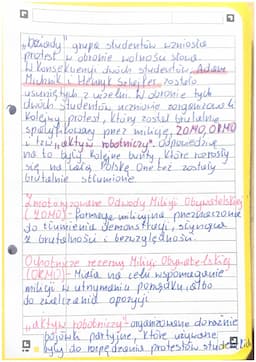 "Dziady" grupa studentów wzniosła
protest w obronie wolności słowa.
W konsekwencji dwóch studentów Adam
Michnik i Henryk Szlajfer zostało
usuniętych z uczelni. W obronie tych
dwóch studentów uczniowie zorganizowali
kolejny protest, który został brutalnie
spacyfikowany przez milicję, ZOMO, ORMO
i tzw. "aktyw robotniczy". Odpowiedzią
na to były kolejne bunty, które rozrosły
się na całą Polskę. One też zostały
brutalnie stłumione.
Zmotoryzowane Odwody Milicji Obywatelskiej
(ZOMO) - formacja milicyjna przeznaczona
do tłumienia demonstracji, słynąca
z brutalności i bezwzględności.
Ochotnicze rezerwy Milicji Obywatelskiej
(ORMO) - Miała na celu wspomaganie
milicji w utrzymaniu porządku, albo
do zwalczania opozycji
"aktyw robotniczy" - organizowane doraźnie
bojówki partyjne, które używane
były do rozpędzania protestów studenckich